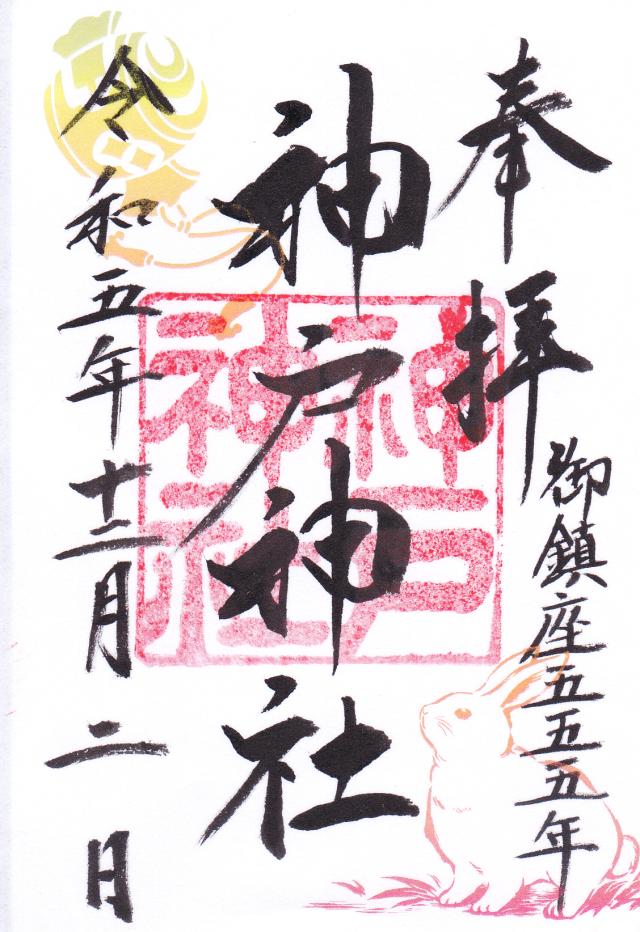 奉拝
御鎮座五五五年
神戸神社
神戸神社
令和五年十二月二日